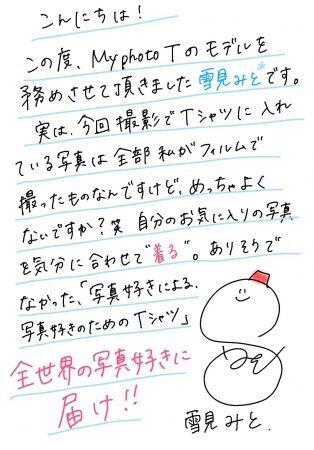 こんにちは!
この度、My photo Tのモデルを
務めさせて頂きました雪見みとです。
実は、今回撮影でTシャツに入れ
ている写真は全部私がフィルムで
撮ったものなんですけど、めっちゃよく
ないですか?笑 自分のお気に入りの写真
を気分に合わせて"着る"。ありそうで
なかった、「写真好きによる、
写真好きのためのTシャツ」
全世界の写真好きに
届け!!
みと
雪見みと.